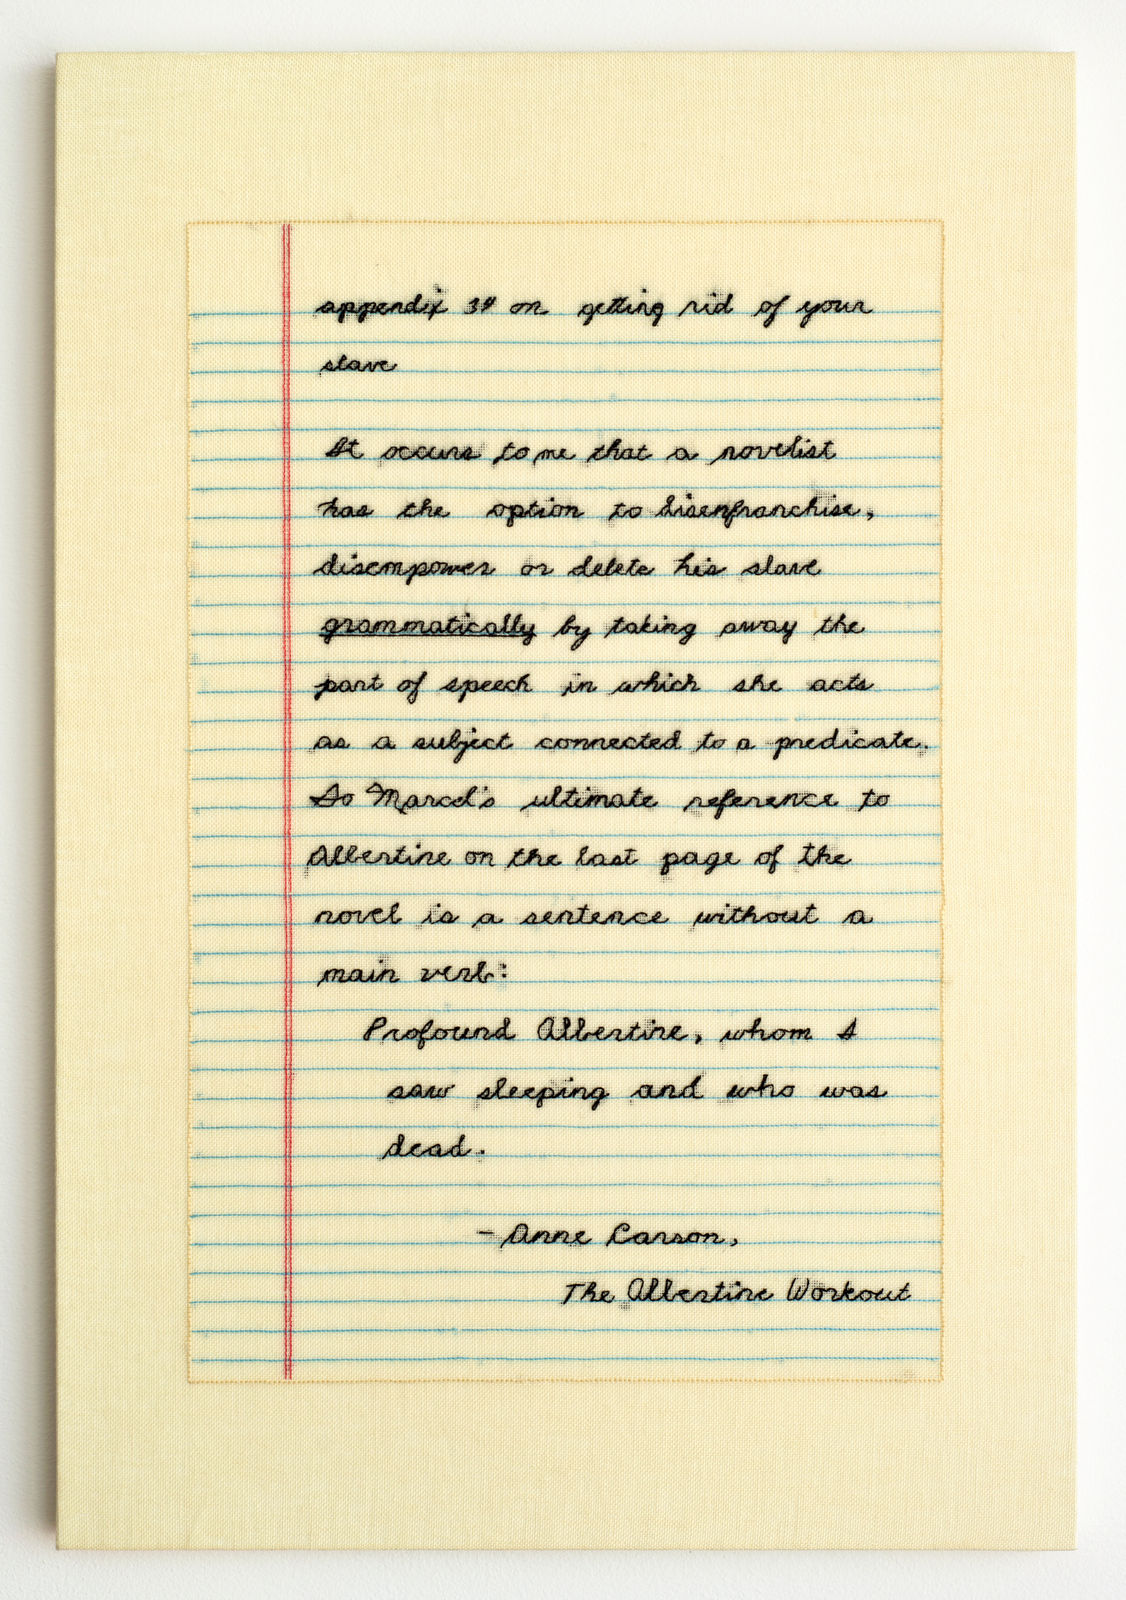 appendix 34 on getting rid of your
slave
It occurs to me that a novelist
has the option to disenfranchise,
disempower or delete his slave
grammatically by taking away the
part of speech in which she acts
as a subject connected to a predicate.
So Marcel's ultimate reference to
Albertine on the last page of the
novel is a sentence without a
main verb:
Profound Albertine, whom I
saw sleeping and who was
dead.
- Anne Carson,
The Albertine Workout